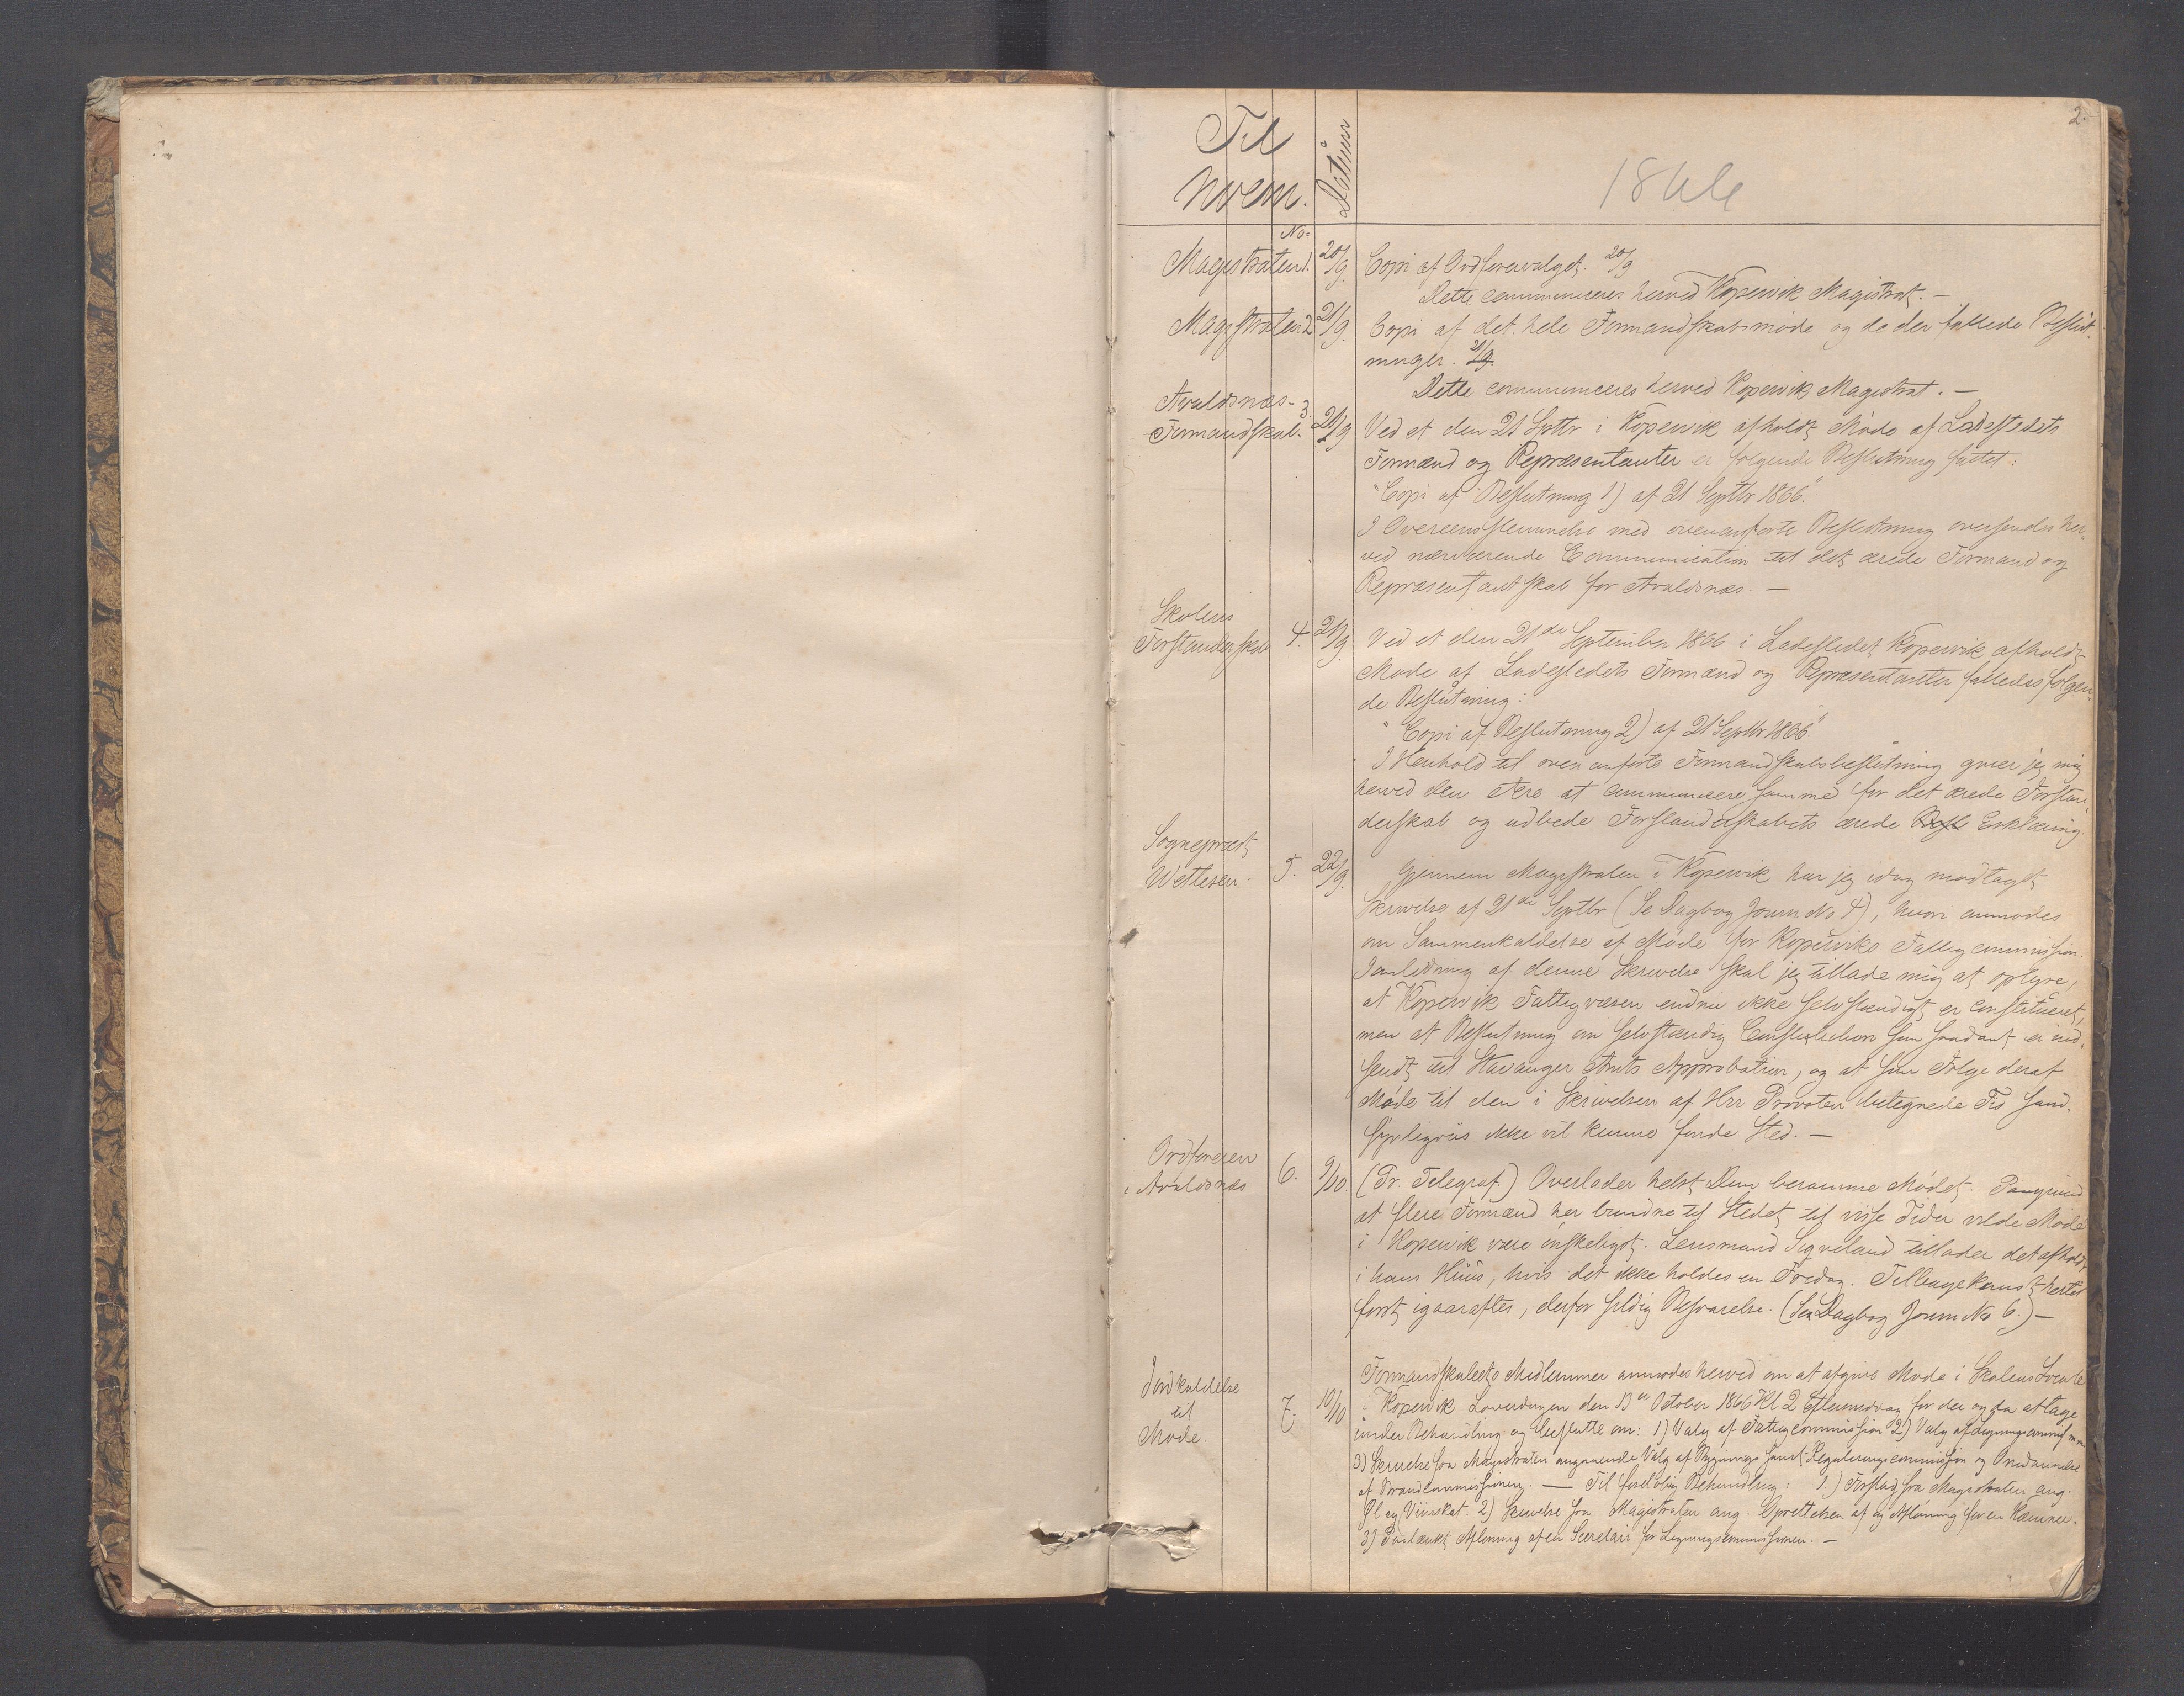 2.
Til
hvem.
No.
Datum
1866
Magistraten 1. 20/9. Copi af Ordførervalget. 20/9
Dette communiceres herved Kopervik Magistrat. —
Magistraten 2 21/9. Copi af det hele Formandskabsmøde og de der fattede Beslut-
ninger. 21/9.
Dette communiceres herved Kopervik Magistrat. —
Avaldsnæs-
Formandskab. 3. 21/9 Ved et den 21 Septbr i Kopervik afholdt Møde af Ladestedets
Formænd og Repræsentanter er følgende Beslutning fattet:
"Copi af Beslutning 1) af 21 Septbr 1866."
I Overeensstemmelse med ovenanførte Beslutning oversendes her-
ved nærværende Communication til det ærede Formand og
Repræsentantskab for Avaldsnæs. —
Skolens
Forstanderskab 4. 21/9. Ved et den 21de September 1866 i Ladestedet Kopervik afholdt
Møde af Ladestedets Formænd og Repræsentanter fattedes følgen-
de Beslutning:
"Copi af Beslutning 2) af 21 Septbr 1866."
I Henhold til ovenanførte Formandskabsbeslutning giver jeg mig
herved den Ære at communicere samme for det ærede Forstan-
derskab og udbede Forstanderskabets ærede Erklæring.
Sogneprest
Wettesen. 5. 22/9. Gjennem Magistraten i Kopervik har jeg idag modtaget
Skrivelse af 21de Septbr (Se Dagbog Journ No 4), hvori anmodes
om Sammenkaldelse af Møde for Koperviks Fattigcommission.
I Anledning af denne Skrivelse skal jeg tillade mig at oplyse,
at Kopervik Fattigvæsen endnu ikke selvstændigt er constitueret,
men at Beslutning om selvstændig Constitution som saadant er ind-
sendt til Stavanger Amts Approbation, og at som Følge deraf
Møde til den i Skrivelsen af Hrr Provsten betegnede Tid sand-
synligviis ikke vil kunne finde Sted. —
Ordføreren
i Avaldsnæs 6. 9/10. (Pr. Telegraf) Overlader helst Dem beramme Mødet. Paagrund
at flere Formænd her bundne til Stedet til visse Tider vilde Møde
i Kopervik være ønskeligst. Lensmand Sigveland tillader det afholdt
i hans Huus, hvis det ikke holdes en Fredag. Tilbagekomst hertil
først igaaraftes, derfor sildig Besvarelse. (Se Dagbog Journ No 6.) —
Indkaldelse
til
Møde. 7. 10/10 Formandskabets Medlemmer anmodes herved om at afgive Møde i Skolens Locale
i Kopervik Løverdagen den 13de October 1866 Kl 2 Eftermiddag for der og da at tage
under Behandling og beslutte om: 1) Valg af Fattigcommission 2) Valg af Ligningscommission
3) Skrivelse fra Magistraten angaaende Valg af Bygnings samt Reguleringscommission og Omdannelse
af Brandcommissionen. — Til foreløbig Behandling: 1.) Forslag fra Magistraten ang.
Øl og Viinskat. 2) Skrivelse fra Magistraten ang. Oprettelsen af og Aflønning for en Kæmner.
3) Paatænkt Aflønning af en Secretair for Ligningscommissionen. —